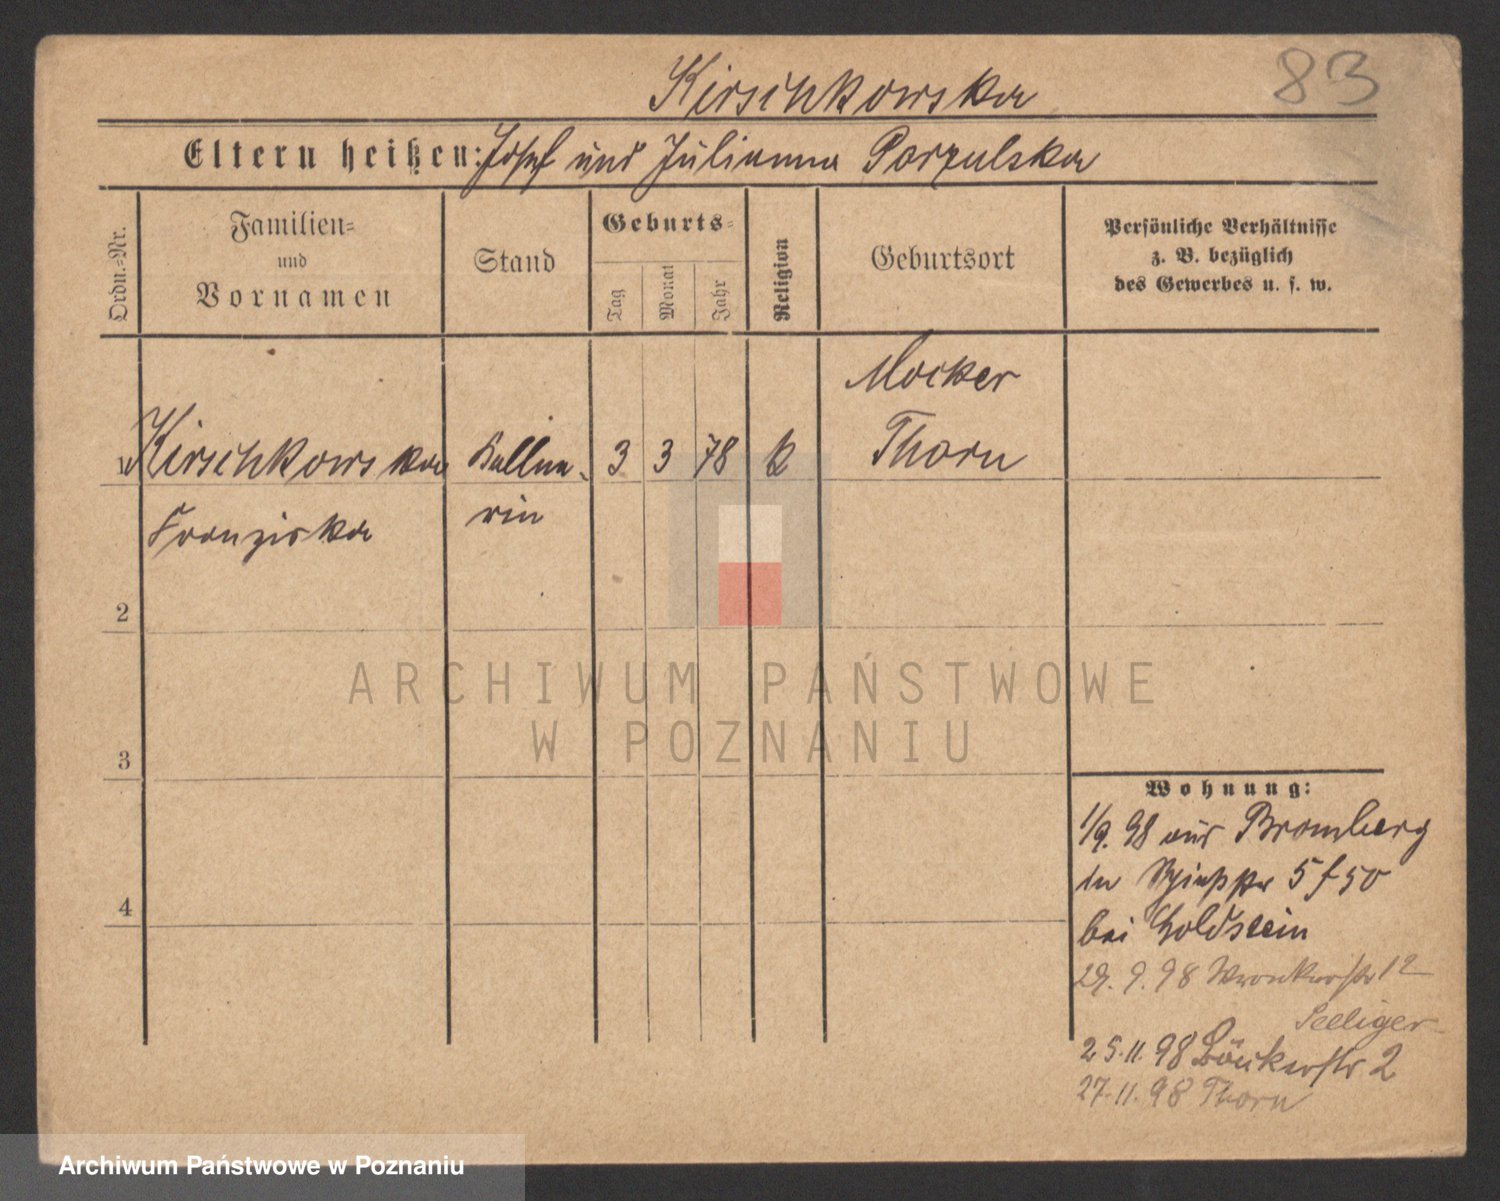 83
Kirschkowska
Eltern heißen: Josef und Julianna Porzulska
Ordn.-Nr.
Familien-
und
Vornamen
Stand
Geburts-
Tag
Monat
Jahr
Religion
Geburtsort
Persönliche Verhältnisse
z. B. bezüglich
des Gewerbes u. s. w.
Mocker
1 Kirschkowska Kellne- 3 3 78 k Thorn
Franziska rin
2
3
4
ARCHIWUM PAŃSTWOWE
W POZNANIU
Wohnung:
1/9. 98 aus Bromberg
in 5 f 50
bei Goldstein
29. 9. 98 Wronkerstr 12
Seeliger
25. 11. 98 Bäckerstr 2
27. 11. 98 Thorn
Archiwum Państwowe w Poznaniu